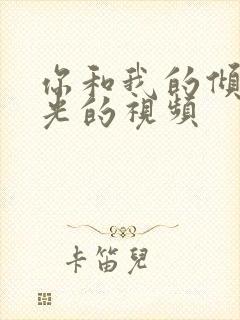 你和我的傾
光的視頻
卡笛兒